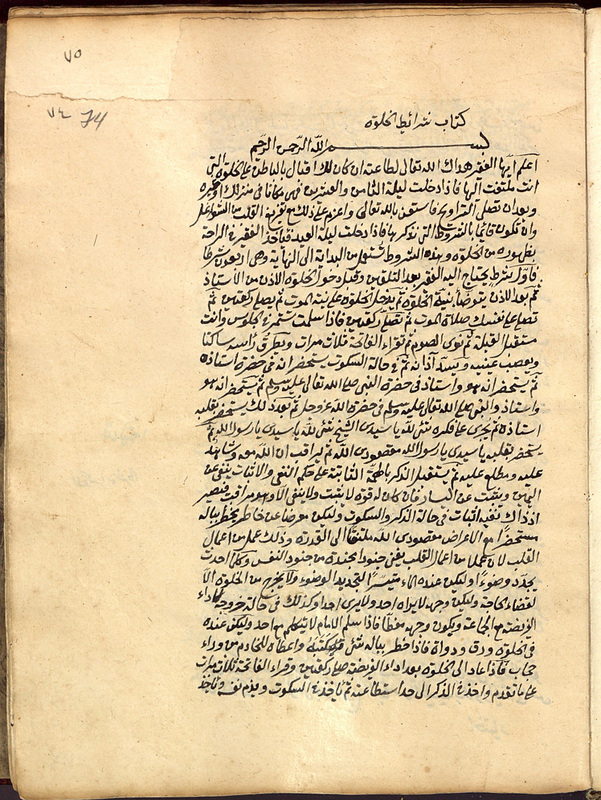 ٧٥
٧٤ 74
كتاب شرائط الخلوة
بسم الله الرحمن الرحيم
اعلم ايها الفقير هداك الله تعالى لطاعته ان كان لك اقبال بالباطن على الخلوة التي
انت ملتفت اليها فاذا دخلت ليلة الثامن والعشرين فهي مكانا في منزلك او غيره
وبعد ان تصلي التراويح فاستعن بالله تعالى واعزم على ذلك مع تفريغ القلب من الشواغل
وان تكون قائما بالشروط التي نذكرها فاذا دخلت ليلة العيد فياخذ الفقير في الراحة
بظهوره من الخلوة وهذه الشروط تشتمل من البداية الى النهاية وهي اربعون شرطا
فاول شرط يحتاج اليه الفقير بعد التلقين وقبل دخول الخلوة الاذن من الاستاذ
ثم بعد الاذن يتوضأ بنية الخلوة ثم يدخل الخلوة على نية الموت ثم يصلي ركعتين ثم
تصلي على نفسك صلاة الموت ثم تصلي ركعتين فاذا سلمت ستمر في الجلوس وانت
مستقبل القبلة ثم تنوي الصوم ثم تقراء الفاتحة ثلاث مرات ويطرق رأسه ساكتا
ويعصب عينيه ويسد آذانه ثم في حالة السكوت يستحضر انه في حضرة استاذه
ثم يستحضر انه هو واستاذه في حضرة النبي صلى الله تعالى عليه وسلم ثم يستحضر انه هو
واستاذه والنبي صلى الله تعالى عليه وسلم في حضرة الله عز وجل ثم بعد ذلك يستحضر بقلبه
استاذه ثم يجري على فكره شئ لله يا سيدي الشيخ شئ لله يا سيدي يا رسول الله ثم
يستحضر بقلبه يا سيدي يا رسول الله مقصودي الله ثم يراقب ان الله معه وشاهد
عليه ومطلع عليه ثم يستقبل الذكر بالهمة الثابتة على حكم النفي والاثبات ينفي عن
اليمين ويثبت عن اليسار فان كان له قوة لا يثبت ولا ينفي الا وهو مراقب فيصير
اذ ذاك نفيه اثبات في حالة الذكر والسكوت وليكن معرضا عن خاطر يخطر بباله
مستحضرا مع الاعراض مقصودي الله ملتفتا الى القدرة وذلك عمل من اعمال
القلب لان عملا من اعمال القلب يفني جنودا مجندة من جنود النفس وكلما احدث
يجدد وضوءا وليكن عنده الماء متيسرا لتجديد الوضوء ولا يخرج من الخلوة الا
لقضاء الحاجة وليكن وجهه لا يراه احد ولا يرى احدا وكذلك في حالة خروجه لاداء
الفريضة مع الجماعة ويكون وجهه مغطا فاذا سلم الامام لا يتكلم مع احد وليكن عنده
في الخلوة ورق ودواة فاذا خطر بباله شئ كتبه واعطاه للخادم من وراء
حجاب فاذا عاد الى الخلوة بعد اداء الفريضة صلى ركعتين وقراء الفاتحة ثلاث مرات
على ما تقدم واخذ في الذكر الى حد استطاعته ثم ياخذ في السكوت ويذم نفسه وياخذ